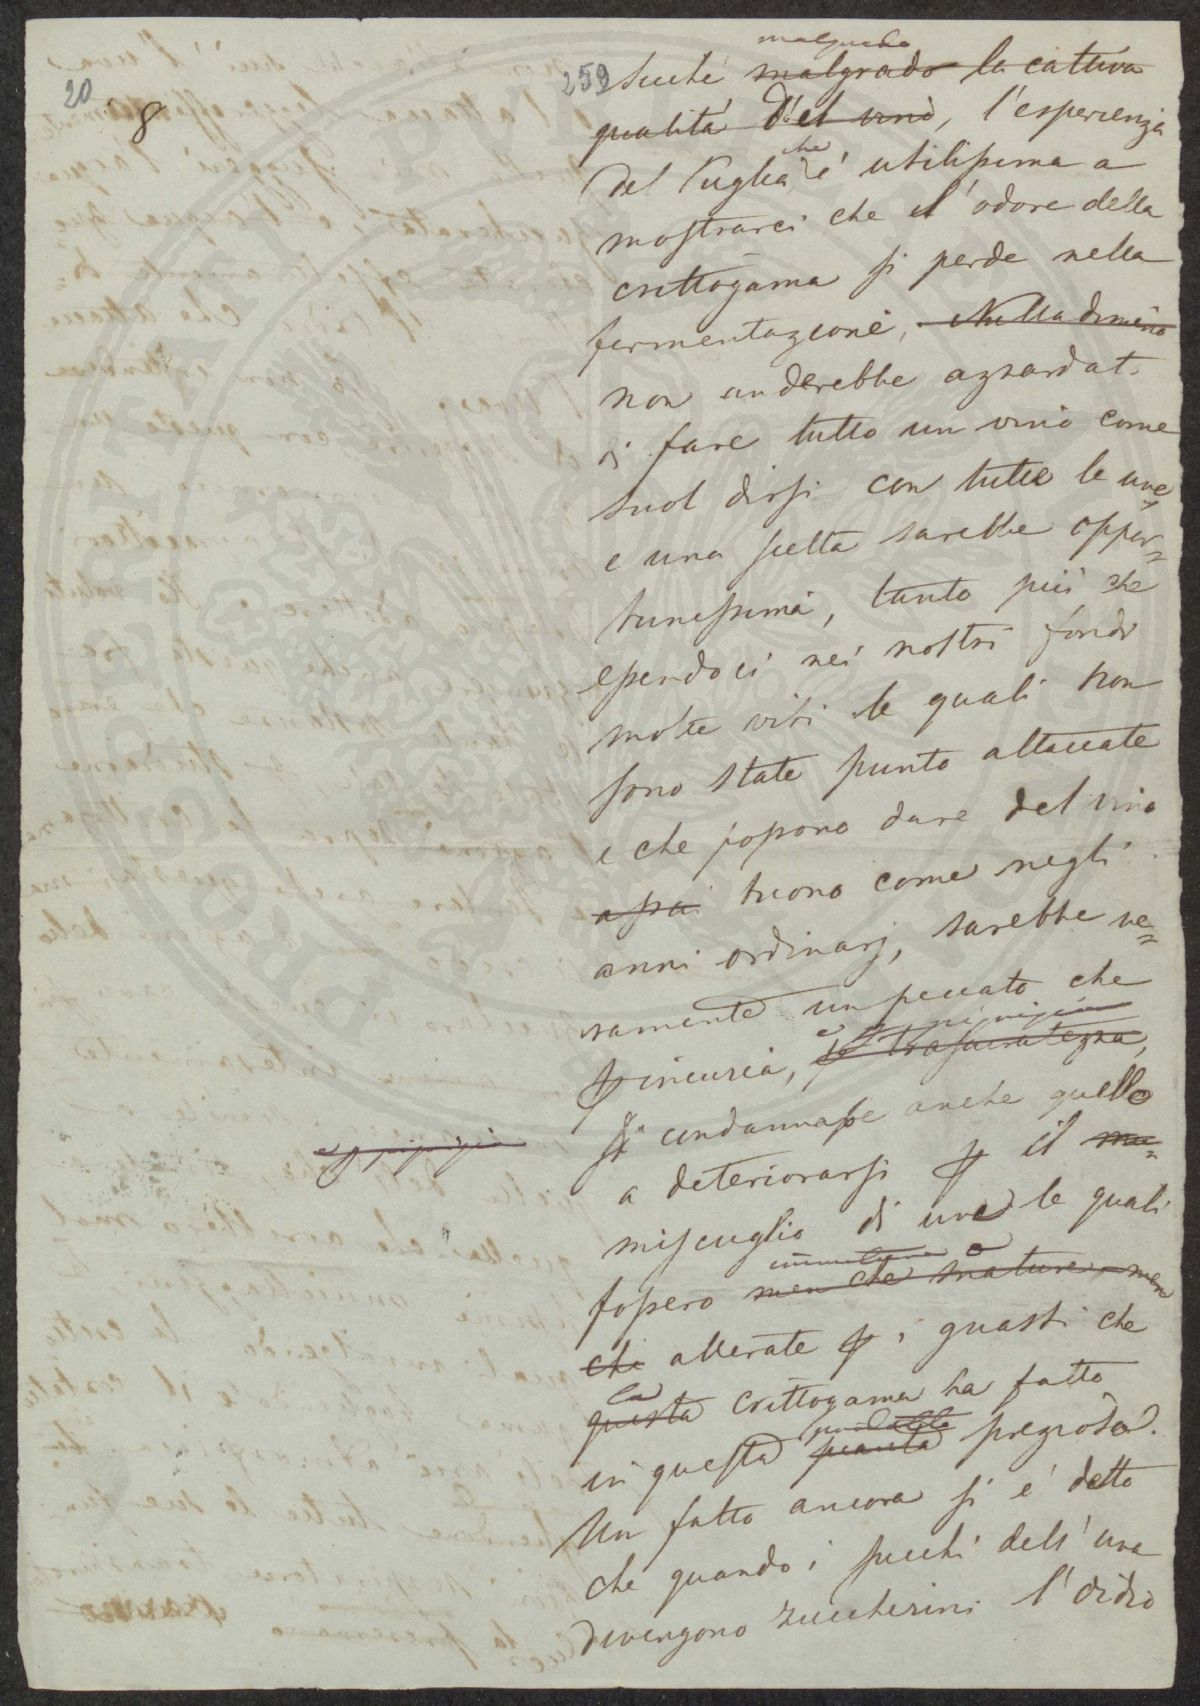 20
8
259
malgrado
sicchè malgrado la cattiva
qualità del vino, l'esperienza
che
del Puglia è utilissima a
mostrarci che l'odore della
crittogama si perde nella
fermentazione, Nulladimeno
non anderebbe azzardat.
di fare tutto un vino come
suol dirsi con tutte le uve,
e una scelta sarebbe oppor=
tunissima, tanto più che
essendoci nei nostri fondi
molte viti le quali non
sono state punto attaccate
e che possono dare del vino
assai buono come negli
anni ordinarj, sarebbe ve=
ramente un peccato che
p incuria, p trascuratezza,
si condannasse anche quello
a deteriorarsi p il mi=
miscuglio di uve le quali
immature o
fossero men che mature, men
che alterate p i guasti che
la
questa crittogama ha fatto
in questa pianta pregiosa.
Un fatto ancora si è detto
che quando i succhi dell'uva
divengono zuccherini l'oidio